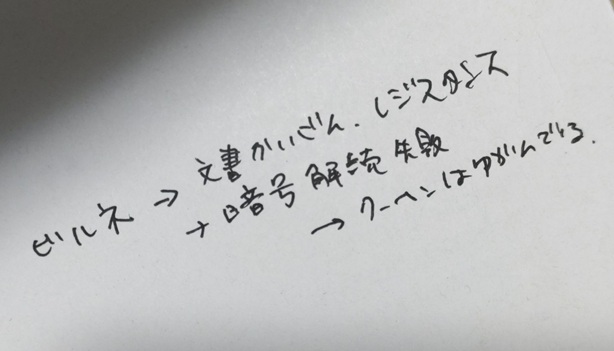 ビルネ → 文書かいざん. レジスタンス
→ 暗号解読失敗
→ クーヘンはゆがんでいる.